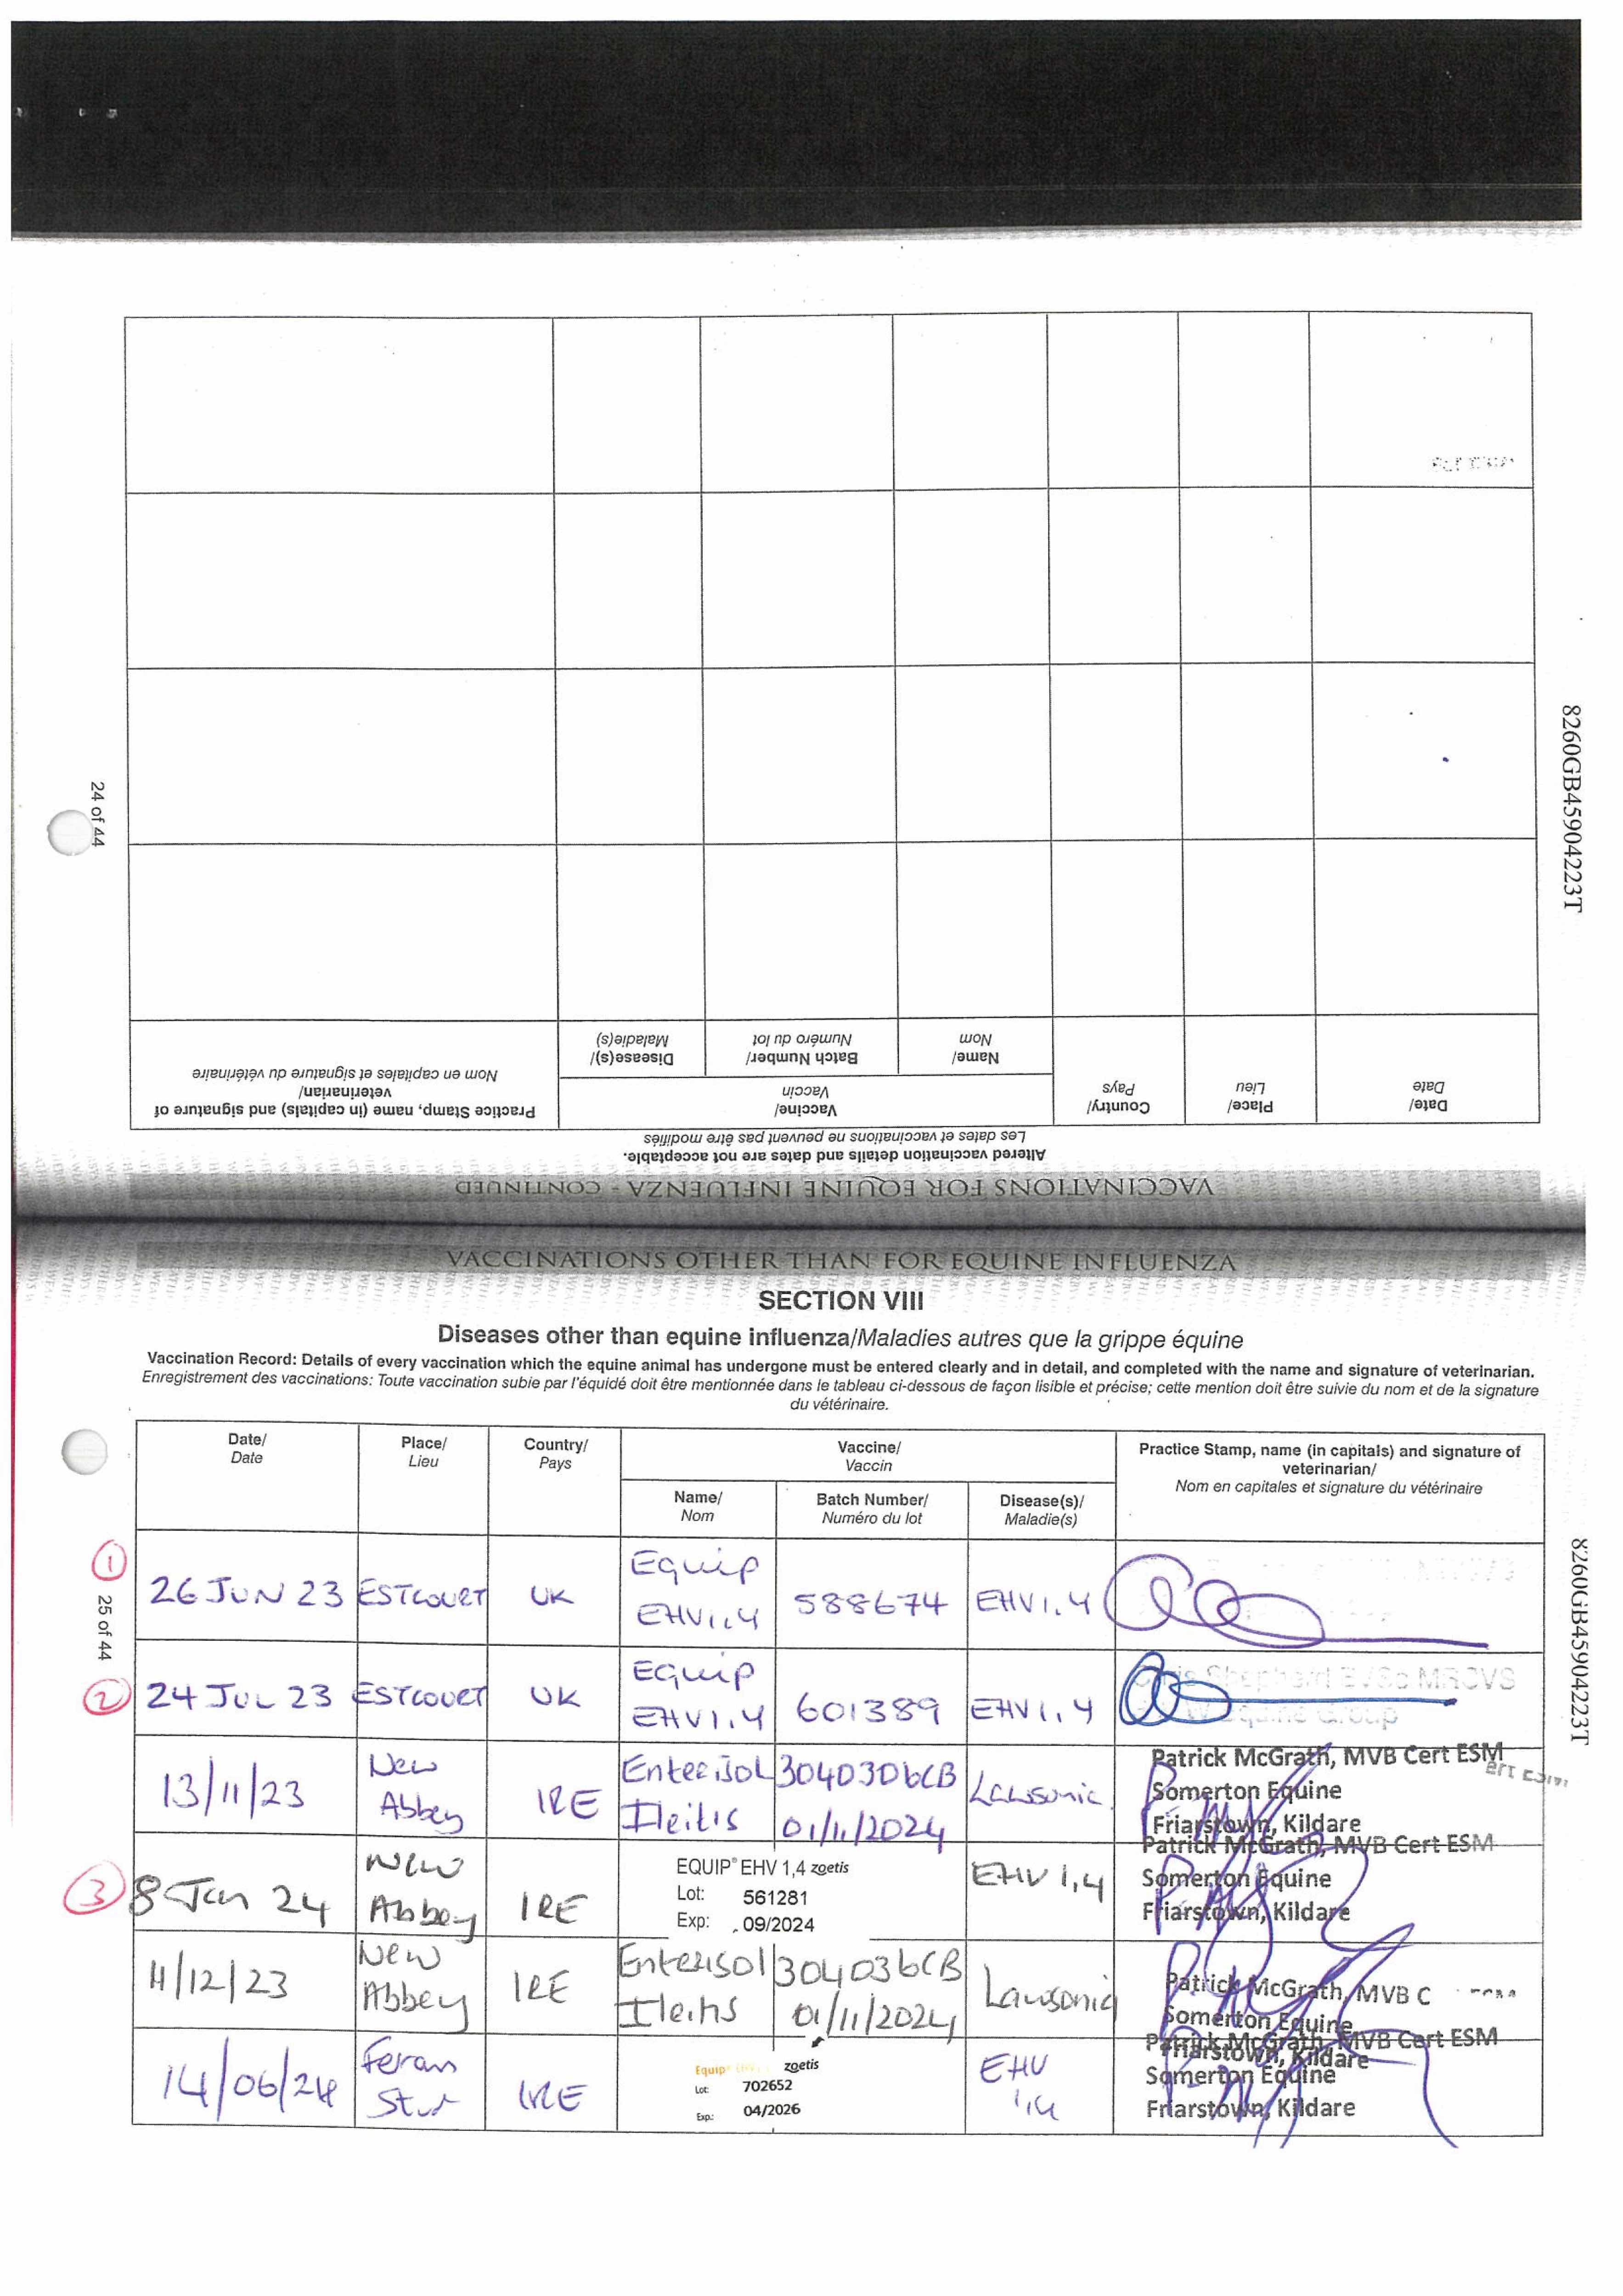 VACCINATIONS FOR EQUINE INFLUENZA - CONTINUED
Altered vaccination details and dates are not acceptable.
Les dates et vaccinations ne peuvent pas être modifiées
Date/
Date
Place/
Lieu
Country/
Pays
Vaccine/
Vaccin
Name/
Nom
Batch Number/
Numéro du lot
Disease(s)/
Maladie(s)
Practice Stamp, name (in capitals) and signature of
veterinarian/
Nom en capitales et signature du vétérinaire
24 of 44
8260GB45904223T
VACCINATIONS OTHER THAN FOR EQUINE INFLUENZA
SECTION VIII
Diseases other than equine influenza/Maladies autres que la grippe équine
Vaccination Record: Details of every vaccination which the equine animal has undergone must be entered clearly and in detail, and completed with the name and signature of veterinarian.
Enregistrement des vaccinations: Toute vaccination subie par l'équidé doit être mentionnée dans le tableau ci-dessous de façon lisible et précise; cette mention doit être suivie du nom et de la signature
du vétérinaire.
Date/
Date
Place/
Lieu
Country/
Pays
Vaccine/
Vaccin
Name/
Nom
Batch Number/
Numéro du lot
Disease(s)/
Maladie(s)
Practice Stamp, name (in capitals) and signature of
veterinarian/
Nom en capitales et signature du vétérinaire
1
26 JUN 23 ESTCOURT UK Equip EHV1,4 588674 EHV1,4
25 of 44
2
24 JUL 23 ESTCOURT UK Equip EHV1,4 601389 EHV1,4
Shepherd BVSc MRCVS
Equine Group
13/11/23 New Abbey IRE Enterisol Ileitis 3040306CB 01/11/2024 Lawsonia
Patrick McGrath, MVB Cert ESM
Somerton Equine
Friarstown, Kildare
3
8 Jan 24 New Abbey IRE
EQUIP® EHV 1,4 zoetis
Lot: 561281
Exp: 09/2024
EHV 1,4
Patrick McGrath, MVB Cert ESM
Somerton Equine
Friarstown, Kildare
11/12/23 New Abbey IRE Enterisol Ileitis 304036CB 01/11/2024 Lawsonia
Patrick McGrath, MVB C
Somerton Equine
Friarstown, Kildare
14/06/24 IRE
Equip zoetis
Lot: 702652
Exp.: 04/2026
EHV
1,4
Patrick McGrath, MVB Cert ESM
Somerton Equine
Friarstown, Kildare
8260GB45904223T